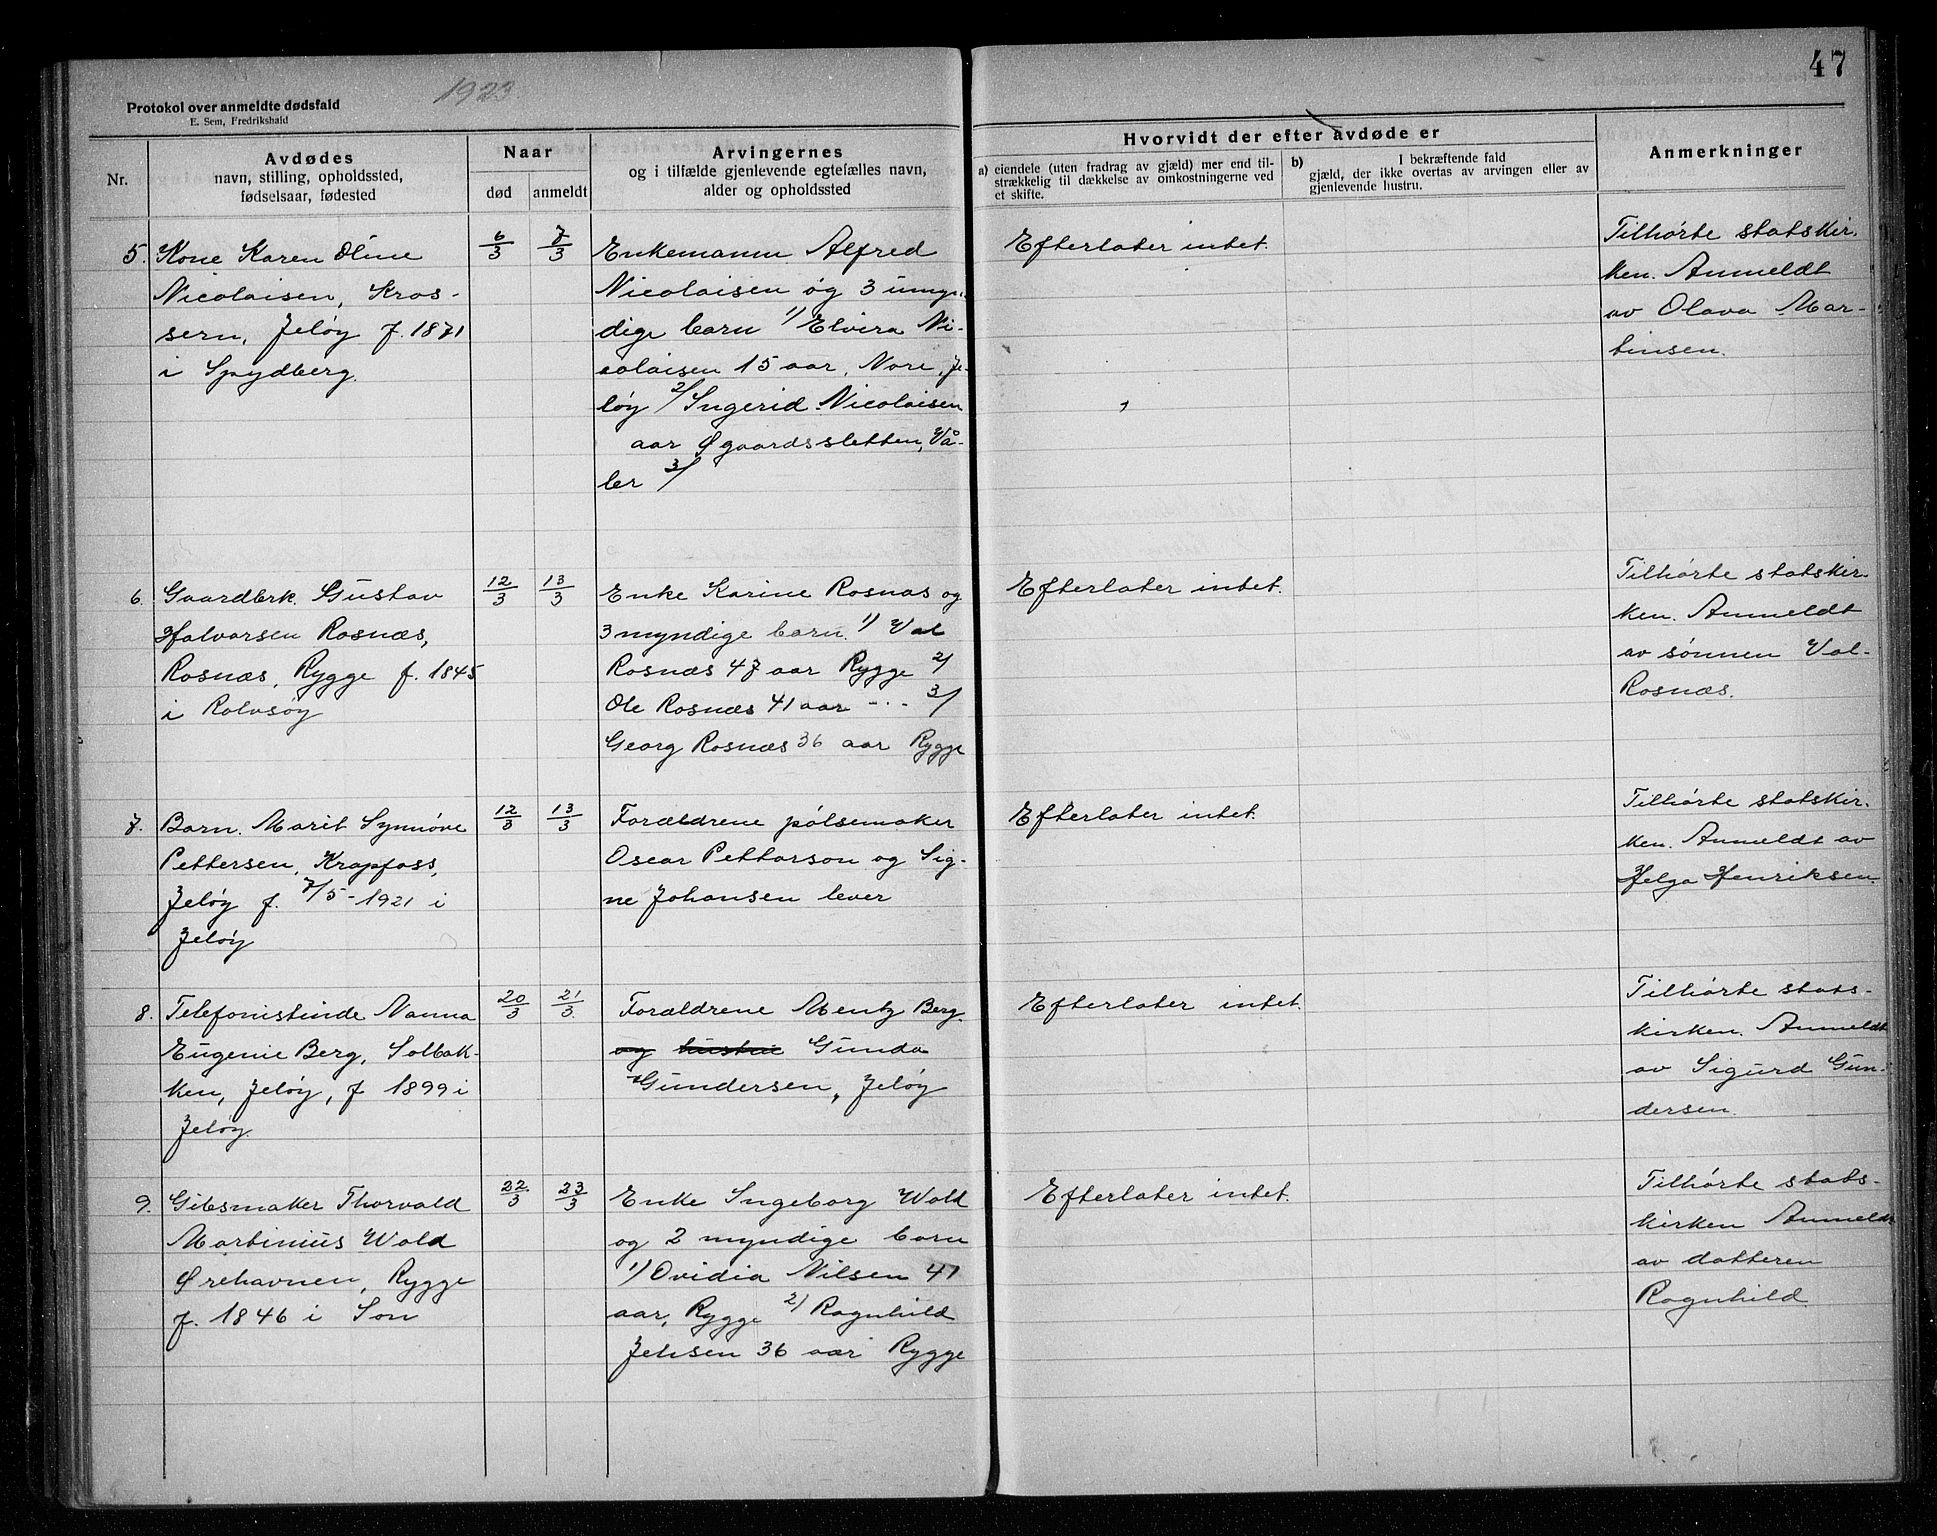 47
1923
Protokol over anmeldte dødsfald
E. Sem, Fredrikshald
Nr.
Avdødes
navn, stilling, opholdssted,
fødselsaar, fødested
Naar
død
anmeldt
Arvingernes
og i tilfælde gjenlevende egtefælles navn,
alder og opholdssted
Hvorvidt der efter avdøde er
a) eiendele (uten fradrag av gjæld) mer end til-
strækkelig til dækkelse av omkostningerne ved
et skifte.
b) I bekræftende fald
gjæld, der ikke overtas av arvingen eller av
gjenlevende hustru.
Anmerkninger
5. Kone Karen Oline
Nicolaisen, Kros-
sern, Jeløy f. 1871
i Spydberg.
6/3
7/3
Enkemann Alfred
Nicolaisen og 3 umyn-
dige barn 1/ Elvira Ni-
colaisen 15 aar, Nore, Je-
løy 2/ Ingerid Nicolaisen
aar Øgaardssletten, Vå-
ler 3/
Efterlater intet.
Tilhørte statskir.
ken. Anmeldt
av Olava Mar-
tinsen.
6. Gaardbrk. Gustav
Halvorsen Rosnæs,
Rosnæs, Rygge f. 1845
i Rolvsøy
12/3
13/3
Enke Karine Rosnæs og
3 myndige barn. 1/ Val
Rosnæs 47 aar Rygge 2/
Ole Rosnæs 41 aar -"- 3/
Georg Rosnæs 36 aar Rygge
Efterlater intet.
Tilhørte statskir.
ken. Anmeldt
av sønnen Val-
Rosnæs.
7. Barn. Marit Synnøve
Pettersen, Krapfoss,
Jeløy f. 7/5 - 1921 i
Jeløy
12/3
13/3
Forældrene pølsemaker
Oscar Petterson og Sig-
ne Johansen lever
Efterlater intet.
Tilhørte statskir.
ken. Anmeldt av
Helga Henriksen.
8. Telefonistinde Nanna
Eugenie Berg, Solbak-
ken, Jeløy, f 1899 i
Jeløy.
20/3
21/3.
Forældrene Mentz Berg.
og hustru Gunda
Gundersen, Jeløy
Efterlater intet.
Tilhørte stats-
kirken. Anmeldt
av Sigurd Gun-
dersen.
9. Gibsmaker Thorvald
Martinius Wold
Ørehavnen, Rygge
f. 1846 i Son
22/3
23/3
Enke Ingeborg Wold
og 2 myndige barn
1/ Ovidia Nilsen 41
aar, Rygge 2/ Ragnhild
Jensen 36 aar Rygge
Efterlater intet.
Tilhørte stats-
kirken Anmeldt
av datteren
Ragnhild.